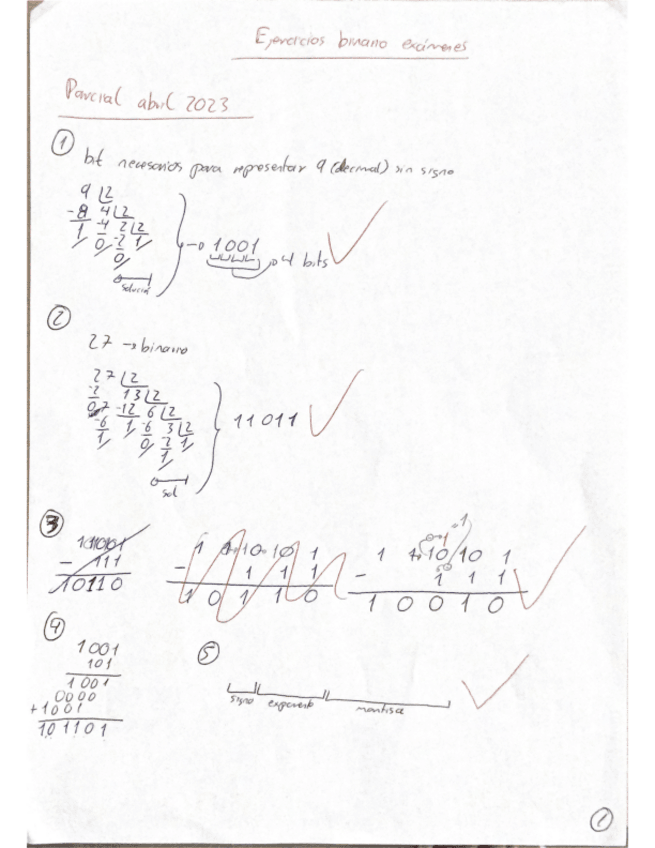 Ejercicios binario exámenes
Parcial abril 2023
1
bit necesarios para representar 9 (decimal) sin signo
9 2
-8 4 2
1 -4 2 2
0 -2 1
0
solución
1001
4 bits
2
27 → binario
27 2
13 2
-12 6 2
-6 1 -6 3 2
1 0 -2 1
1
sol
11011
3
- 111
10110
- 1 1 1
1 0 1 1 0
- 1 1 1
1 0 0 1 0
4
1001
101
1001
0000
+1001
101101
5
signo exponente mantisa
1